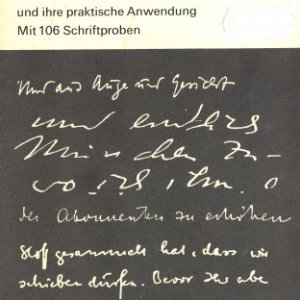 und ihre praktische Anwendung
Mit 106 Schriftproben
Und aus Auge und Gesicht
und
München zu-
der Abonnenten zu erhöhen
gesammelt hat, dass wir
schieben dürfen. Bevor Ihr aber